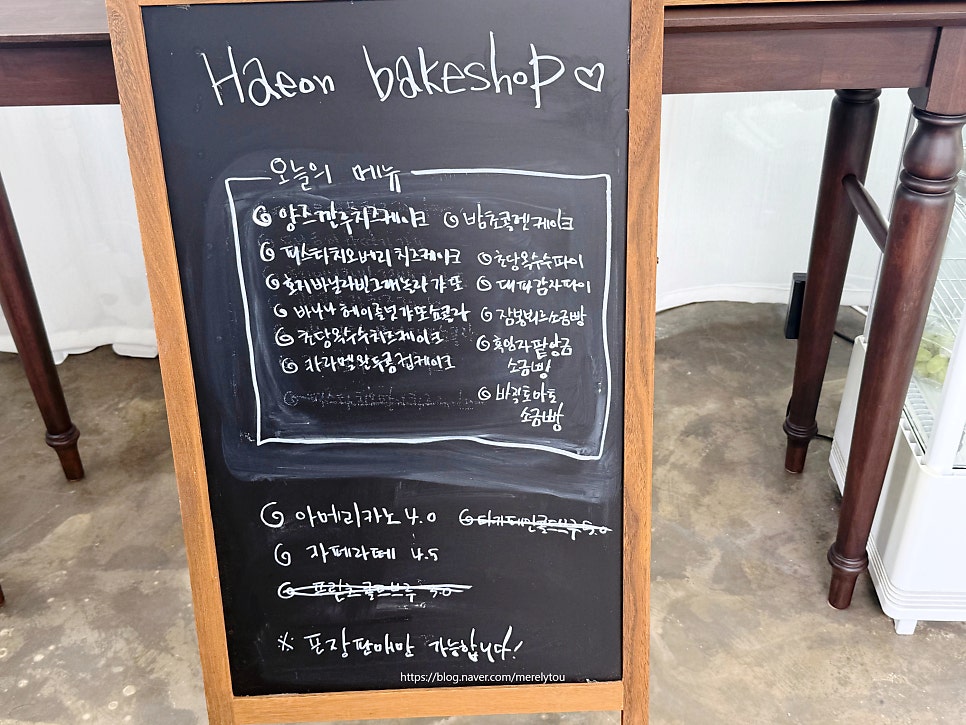 Haeon bakeshop♡
오늘의 메뉴
양즈깐루치즈케이크
피스타치오베리치즈케이크
호지바닐라빈그래놀라갸또
바나나헤이즐넛갸또쇼콜라
초당옥수수치즈케이크
카라멜완두콩컵케이크
밤초콜렛케이크
초당옥수수파이
대파감자파이
잠봉뵈르소금빵
흑임자팥앙금
소금빵
바질토마토
소금빵
아메리카노 4.0
디카페인콜드브루 5.0
카페라떼 4.5
프린츠콜드브루 5.0
※ 포장판매만 가능합니다!
https://blog.naver.com/merelytou